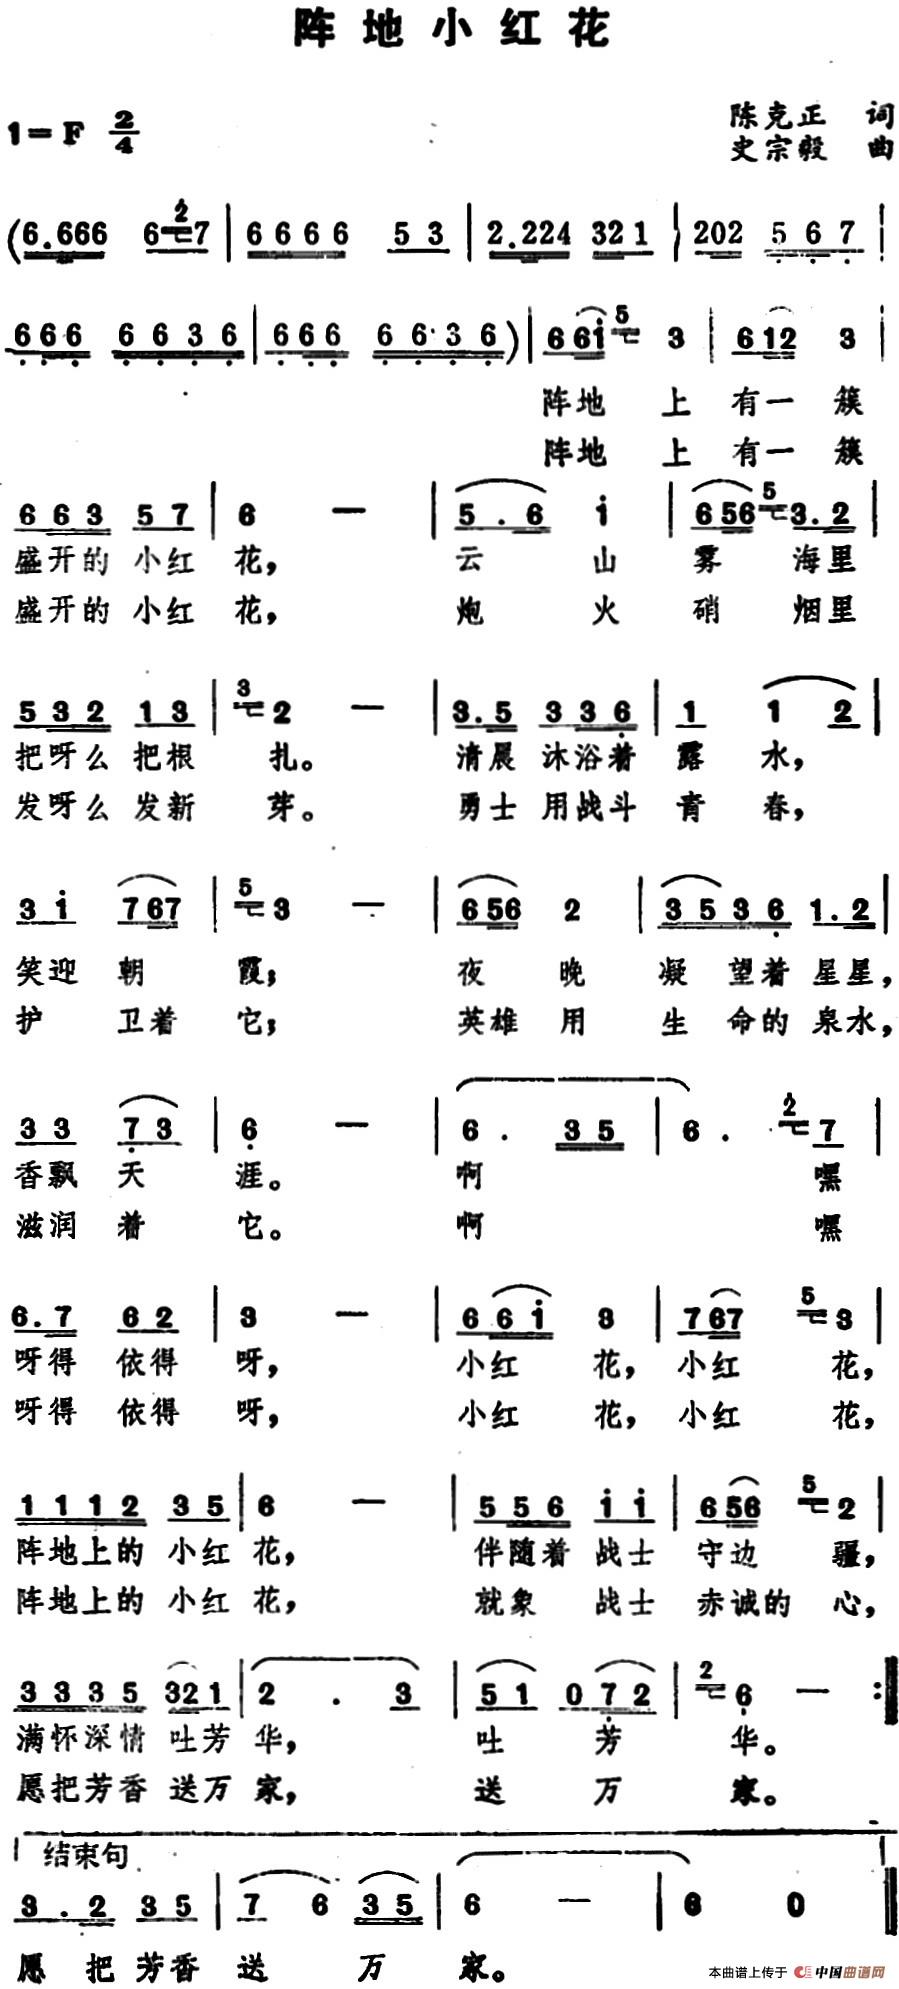 阵地小红花
1=F 2/4
陈克正 词
史宗毅 曲
(6.666 6 2 7 | 6666 53 | 2.224 321 | 202 567 |
666 6636 | 666 6636) | 661 5 3 | 612 3 |
阵地 上 有一 簇
阵地 上 有一 簇
663 57 | 6 — | 5.6 i | 656 5 3.2 |
盛开的 小红 花， 云 山 雾 海里
盛开的 小红 花， 炮 火 硝 烟里
532 13 | 3 2 — | 3.5 336 | 1 1 2 |
把呀么 把根 扎。 清晨 沐浴着 露 水，
发呀么 发新 芽。 勇士 用战斗 青 春，
3i 767 | 5 3 — | 656 2 | 3536 1.2 |
笑迎 朝 霞； 夜 晚 凝 望着 星星，
护 卫着 它； 英雄 用 生 命的 泉水，
33 73 | 6 — | 6. 35 | 6. 2 7 |
香飘 天 涯。 啊 嘿
滋润 着 它。 啊 嘿
6.7 62 | 3 — | 66i 3 | 767 5 3 |
呀得 依得 呀， 小红 花， 小红 花，
呀得 依得 呀， 小红 花， 小红 花，
1112 35 | 6 — | 556 ii | 656 5 2 |
阵地上的 小红 花， 伴随着 战士 守边 疆，
阵地上的 小红 花， 就象 战士 赤诚的 心，
3335 321 | 2 . 3 | 51 072 | 2 6 — :‖
满怀深情 吐芳 华， 吐 芳 华。
愿把芳香 送万 家， 送 万 家。
结束句
3.2 35 | 7 6 35 | 6 — | 6 0 ‖
愿 把 芳香 送 万 家。
本曲谱上传于 中国曲谱网